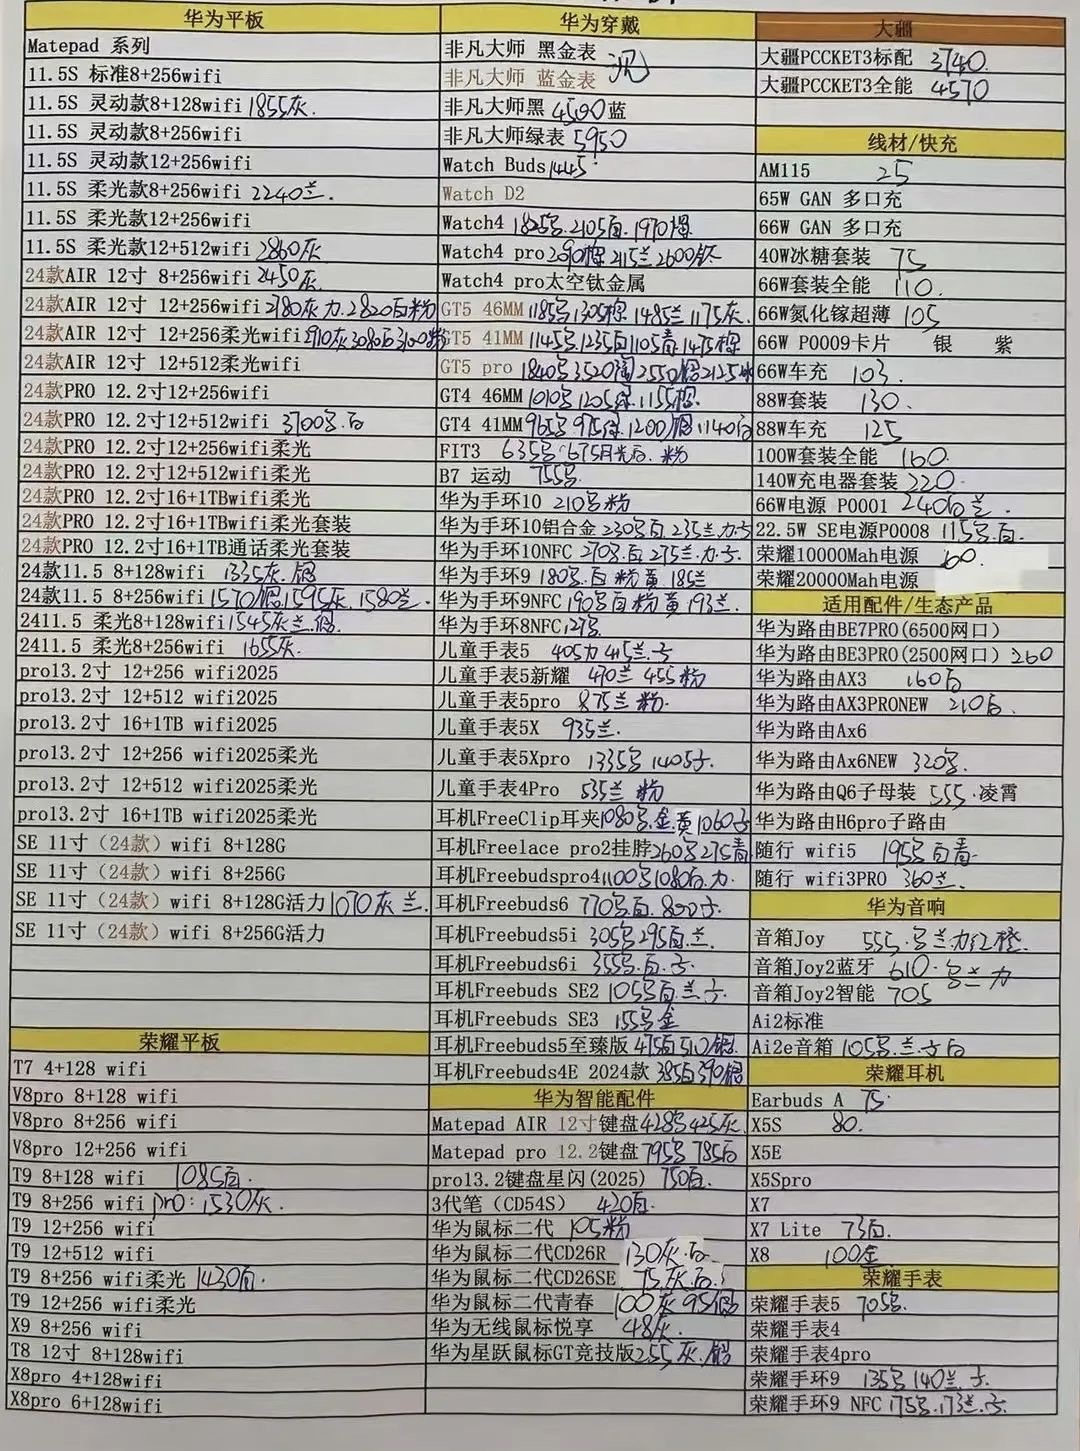 华为平板
Matepad 系列
11.5S 标准8+256wifi
11.5S 灵动款8+128wifi 1855灰.
11.5S 灵动款8+256wifi
11.5S 灵动款12+256wifi
11.5S 柔光款8+256wifi 2240兰.
11.5S 柔光款12+256wifi
11.5S 柔光款12+512wifi 2860灰
24款AIR 12寸 8+256wifi 2450灰.
24款AIR 12寸 12+256wifi 2780灰 力.2820白粉
24款AIR 12寸 12+256柔光wifi 2910灰3080白3100粉
24款AIR 12寸 12+512柔光wifi
24款PRO 12.2寸12+256wifi
24款PRO 12.2寸12+512wifi 3700号.白
24款PRO 12.2寸12+256wifi柔光
24款PRO 12.2寸12+512wifi柔光
24款PRO 12.2寸16+1TBwifi柔光
24款PRO 12.2寸16+1TBwifi柔光套装
24款PRO 12.2寸16+1TB通话柔光套装
24款11.5 8+128wifi 1335灰.
24款11.5 8+256wifi 1570 1595灰.1580兰.
2411.5 柔光8+128wifi 1545灰兰.
2411.5 柔光8+256wifi 1655灰.
pro13.2寸 12+256 wifi2025
pro13.2寸 12+512 wifi2025
pro13.2寸 16+1TB wifi2025
pro13.2寸 12+256 wifi2025柔光
pro13.2寸 12+512 wifi2025柔光
pro13.2寸 16+1TB wifi2025柔光
SE 11寸（24款）wifi 8+128G
SE 11寸（24款）wifi 8+256G
SE 11寸（24款）wifi 8+128G活力 1070灰 兰.
SE 11寸（24款）wifi 8+256G活力
荣耀平板
T7 4+128 wifi
V8pro 8+128 wifi
V8pro 8+256 wifi
V8pro 12+256 wifi
T9 8+128 wifi 1085白.
T9 8+256 wifi pro: 1530灰.
T9 12+256 wifi
T9 12+512 wifi
T9 8+256 wifi柔光 1430白.
T9 12+256 wifi柔光
X9 8+256 wifi
T8 12寸 8+128wifi
X8pro 4+128wifi
X8pro 6+128wifi
华为穿戴
非凡大师 黑金表
非凡大师 蓝金表
非凡大师黑 4500蓝
非凡大师绿表 5950
Watch Buds 1445
Watch D2
Watch4 1825号.2105白.1970棕
Watch4 pro 2115兰2600钛
Watch4 pro太空钛金属
GT5 46MM 1185号1305棕.1485兰1175灰.
GT5 41MM 1145号.1235白1105青1475棕
GT5 pro 1840号3520陶2550 2125
GT4 46MM 1010号1205绿.1155棕.
GT4 41MM 965号 975 1200 1140白
FIT3 635号 675月光白. 粉
B7 运动 755号
华为手环10 210号粉
华为手环10铝合金 230号白 235兰.力.
华为手环10NFC 270号.白 275兰.力.
华为手环9 180号.白 粉黄 185兰
华为手环9NFC 190号白粉黄 193兰.
华为手环8NFC 127号.
儿童手表5 405力 415兰.
儿童手表5新耀 470兰 455粉
儿童手表5pro 875兰 粉.
儿童手表5X 935兰.
儿童手表5Xpro 1335号 1405
儿童手表4Pro 535兰 粉
耳机FreeClip耳夹 1080号.金.黄1060
耳机Freelace pro2挂脖 260号275青
耳机Freebudspro4 1100号1080白.力.
耳机Freebuds6 770号白.800
耳机Freebuds5i 305号295白.兰.
耳机Freebuds6i 355号.白.
耳机Freebuds SE2 105号白.兰
耳机Freebuds SE3 155号金
耳机Freebuds5至臻版 475白510银.
耳机Freebuds4E 2024款 385白390
华为智能配件
Matepad AIR 12寸键盘 428号425灰.
Matepad pro 12.2键盘 795号 785白
pro13.2键盘星闪(2025) 750白.
3代笔（CD54S） 420白.
华为鼠标二代 105粉
华为鼠标二代CD26R 130灰.白
华为鼠标二代CD26SE 75灰.白.
华为鼠标二代青春 100灰 95
华为无线鼠标悦享 48灰.
华为星跃鼠标GT竞技版 255灰.
大疆
大疆PCCKET3标配 3740.
大疆PCCKET3全能 4570
线材/快充
AM115 25
65W GAN 多口充
66W GAN 多口充
40W冰糖套装 75
66W套装全能 110.
66W氮化镓超薄 105
66W P0009卡片 银 紫
66W车充 103.
88W套装 130.
88W车充 125
100W套装全能 160.
140W充电器套装 220.
66W电源 P0001 240白兰.
22.5W SE电源P0008 115号.白.
荣耀10000Mah电源 60.
荣耀20000Mah电源
适用配件/生态产品
华为路由BE7PRO(6500网口)
华为路由BE3PRO(2500网口) 260
华为路由AX3 160白
华为路由AX3PRONEW 210白.
华为路由Ax6
华为路由Ax6NEW 320号.
华为路由Q6子母装 555.凌霄
华为路由H6pro子路由
随行 wifi5 195号白青.
随行 wifi3PRO 360兰.
华为音响
音箱Joy 555.号兰力红橙.
音箱Joy2蓝牙 610.号兰力
音箱Joy2智能 705
Ai2标准
Ai2e音箱 105号.兰.白
荣耀耳机
Earbuds A 75.
X5S 80.
X5E
X5Spro
X7
X7 Lite 73白.
X8 100金
荣耀手表
荣耀手表5 705号.
荣耀手表4
荣耀手表4pro
荣耀手环9 135号140兰.
荣耀手环9 NFC 175号.173兰.